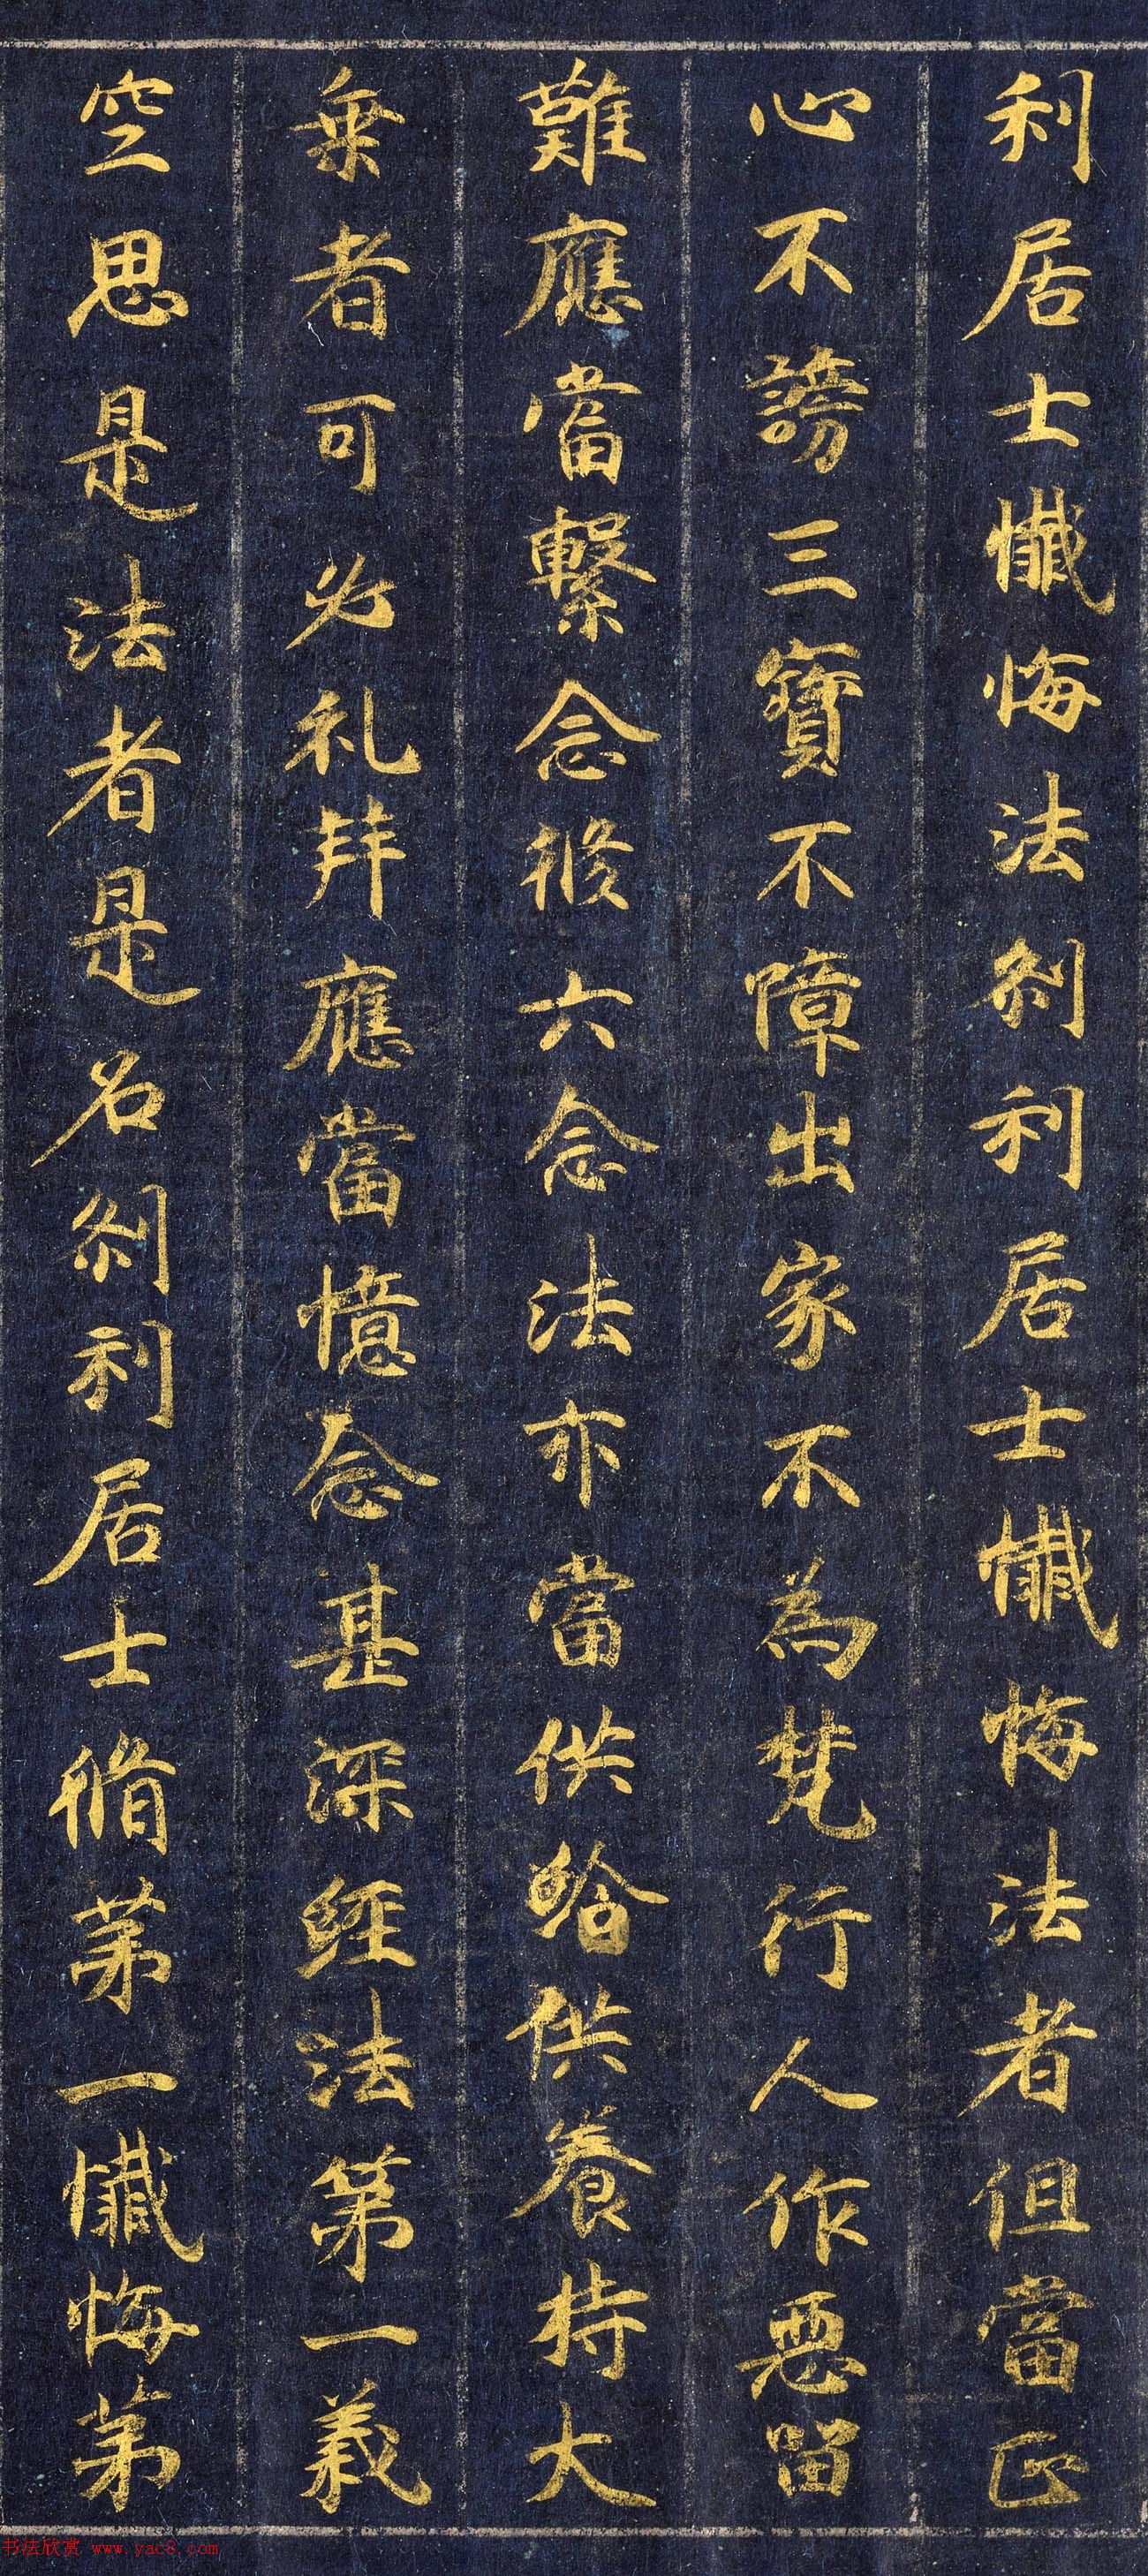 利居士懺悔法刹利居士懺悔法者但當正
心不謗三寶不障出家不為梵行人作惡留
難應當繫念修六念法亦當供給供養持大
乗者可必礼拜應當憶念甚深經法第一義
空思是法者是名刹利居士脩第一懺悔第
书法欣赏 www.yac8.com